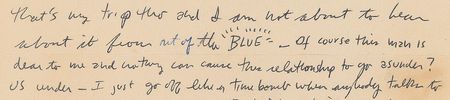 that's my trip tho and I am not about to hear
about it from out of the "BLUE" - Of course this man is
dear to me and nothing can cause this relationship to go asunder?
US under - I just go off like a time bomb when anybody talks to